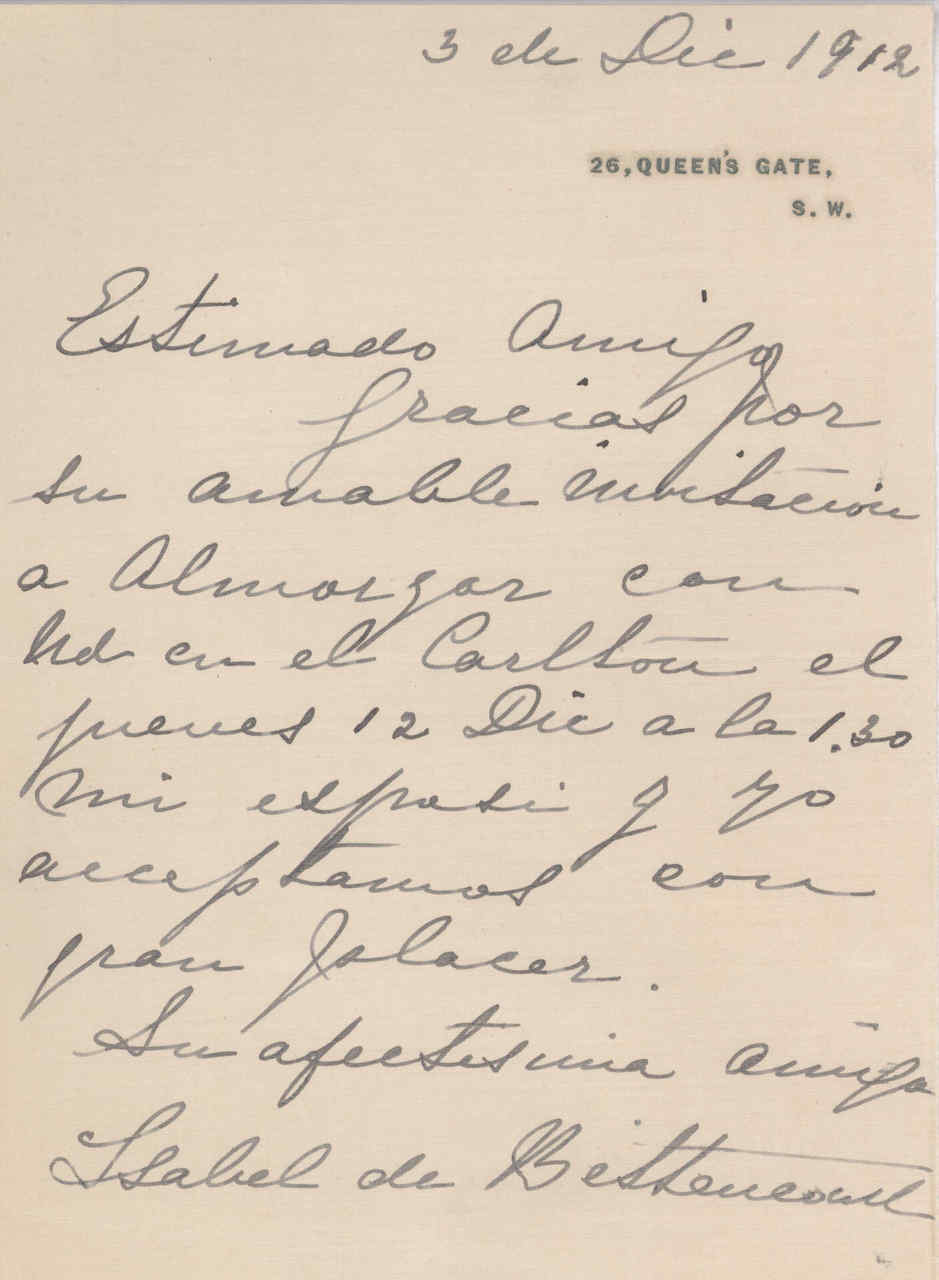 3 de Dic 1912
26, QUEEN'S GATE,
S. W.
Estimado Amigo
Gracias por
su amable invitación
a Almorzar con
Ud en el Carlton el
jueves 12 Dic a la 1.30
mi esposi y yo
acceptamos con
gran placer.
Su afectisima amiga
Isabel de Bettencourt